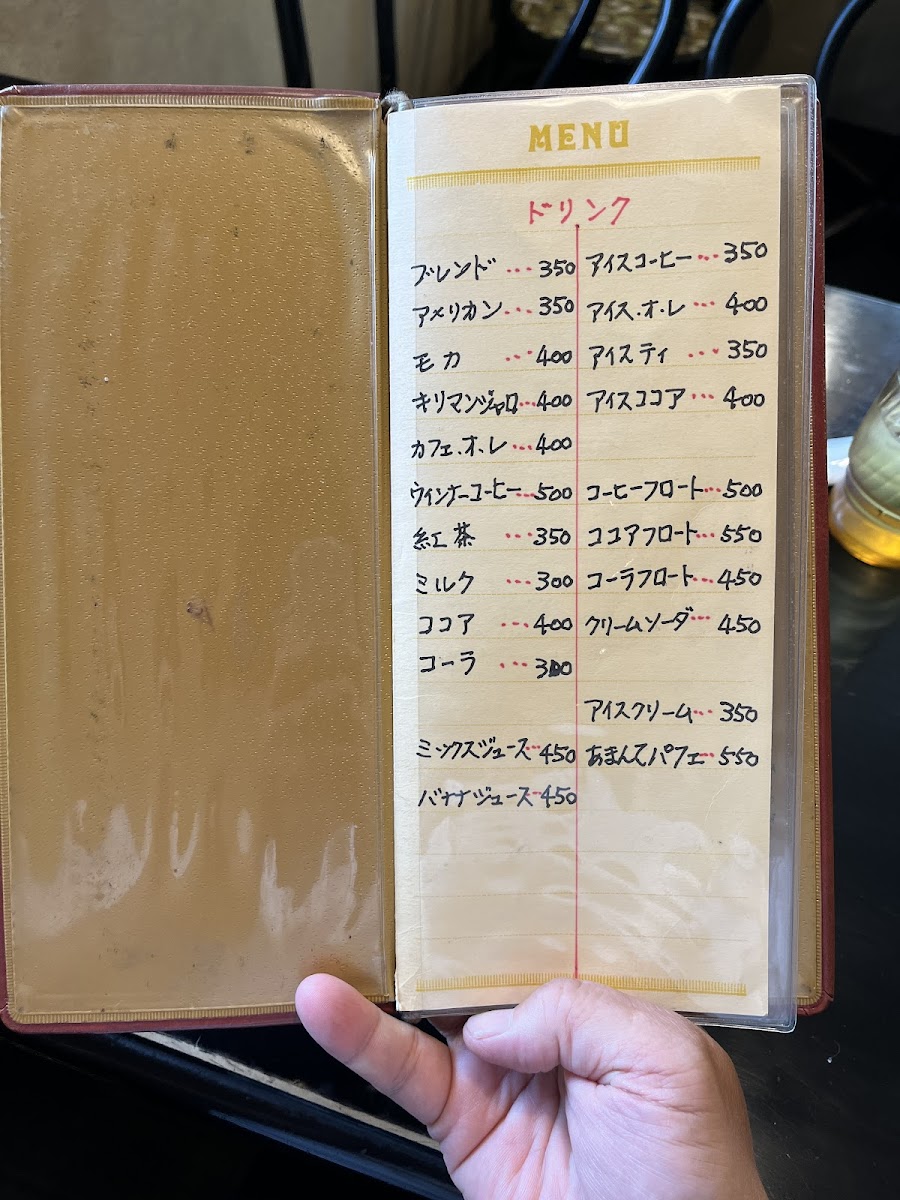 MENU
ドリンク
ブレンド…350
アメリカン…350
モカ…400
キリマンジャロ…400
カフェ.オ.レ…400
ウィンナーコーヒー…500
紅茶…350
ミルク…300
ココア…400
コーラ…300
ミックスジュース…450
バナナジュース…450
アイスコーヒー…350
アイス.オ.レ…400
アイスティ…350
アイスココア…400
コーヒーフロート…500
ココアフロート…550
コーラフロート…450
クリームソーダ…450
アイスクリーム…350
あまんてパフェ…550